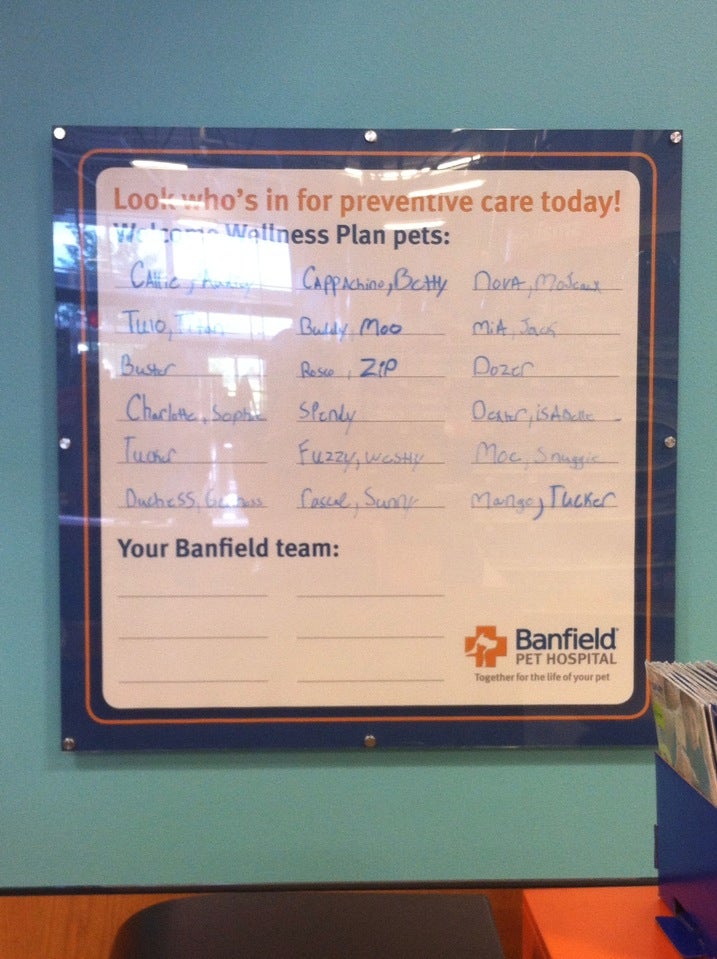 Look who's in for preventive care today!
Welcome Wellness Plan pets:
Callie, Cappachino, Betty Nova,
Buddy, Moo Mia, Jack
Buster Rosco, ZIP Dozer
Charlotte, Sophie Spendy Dexter, isAbelle
Tucker Fuzzy, westly Moe, Snuggie
Duchess, Rascal, Sunny Mango, Tucker
Your Banfield team:
Banfield
PET HOSPITAL
Together for the life of your pet